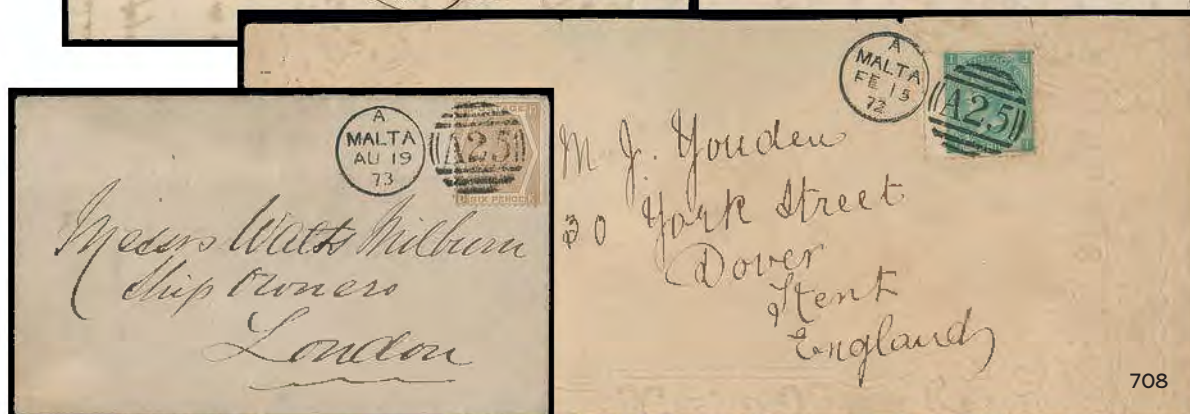 A
MALTA
AU 19
73
A25
SIX PENCE
Messrs Watts Milburn
Ship Owners
London
A
MALTA
FE 15
72
A25
M J. Youden
30 York Street
Dover
Kent
England
708